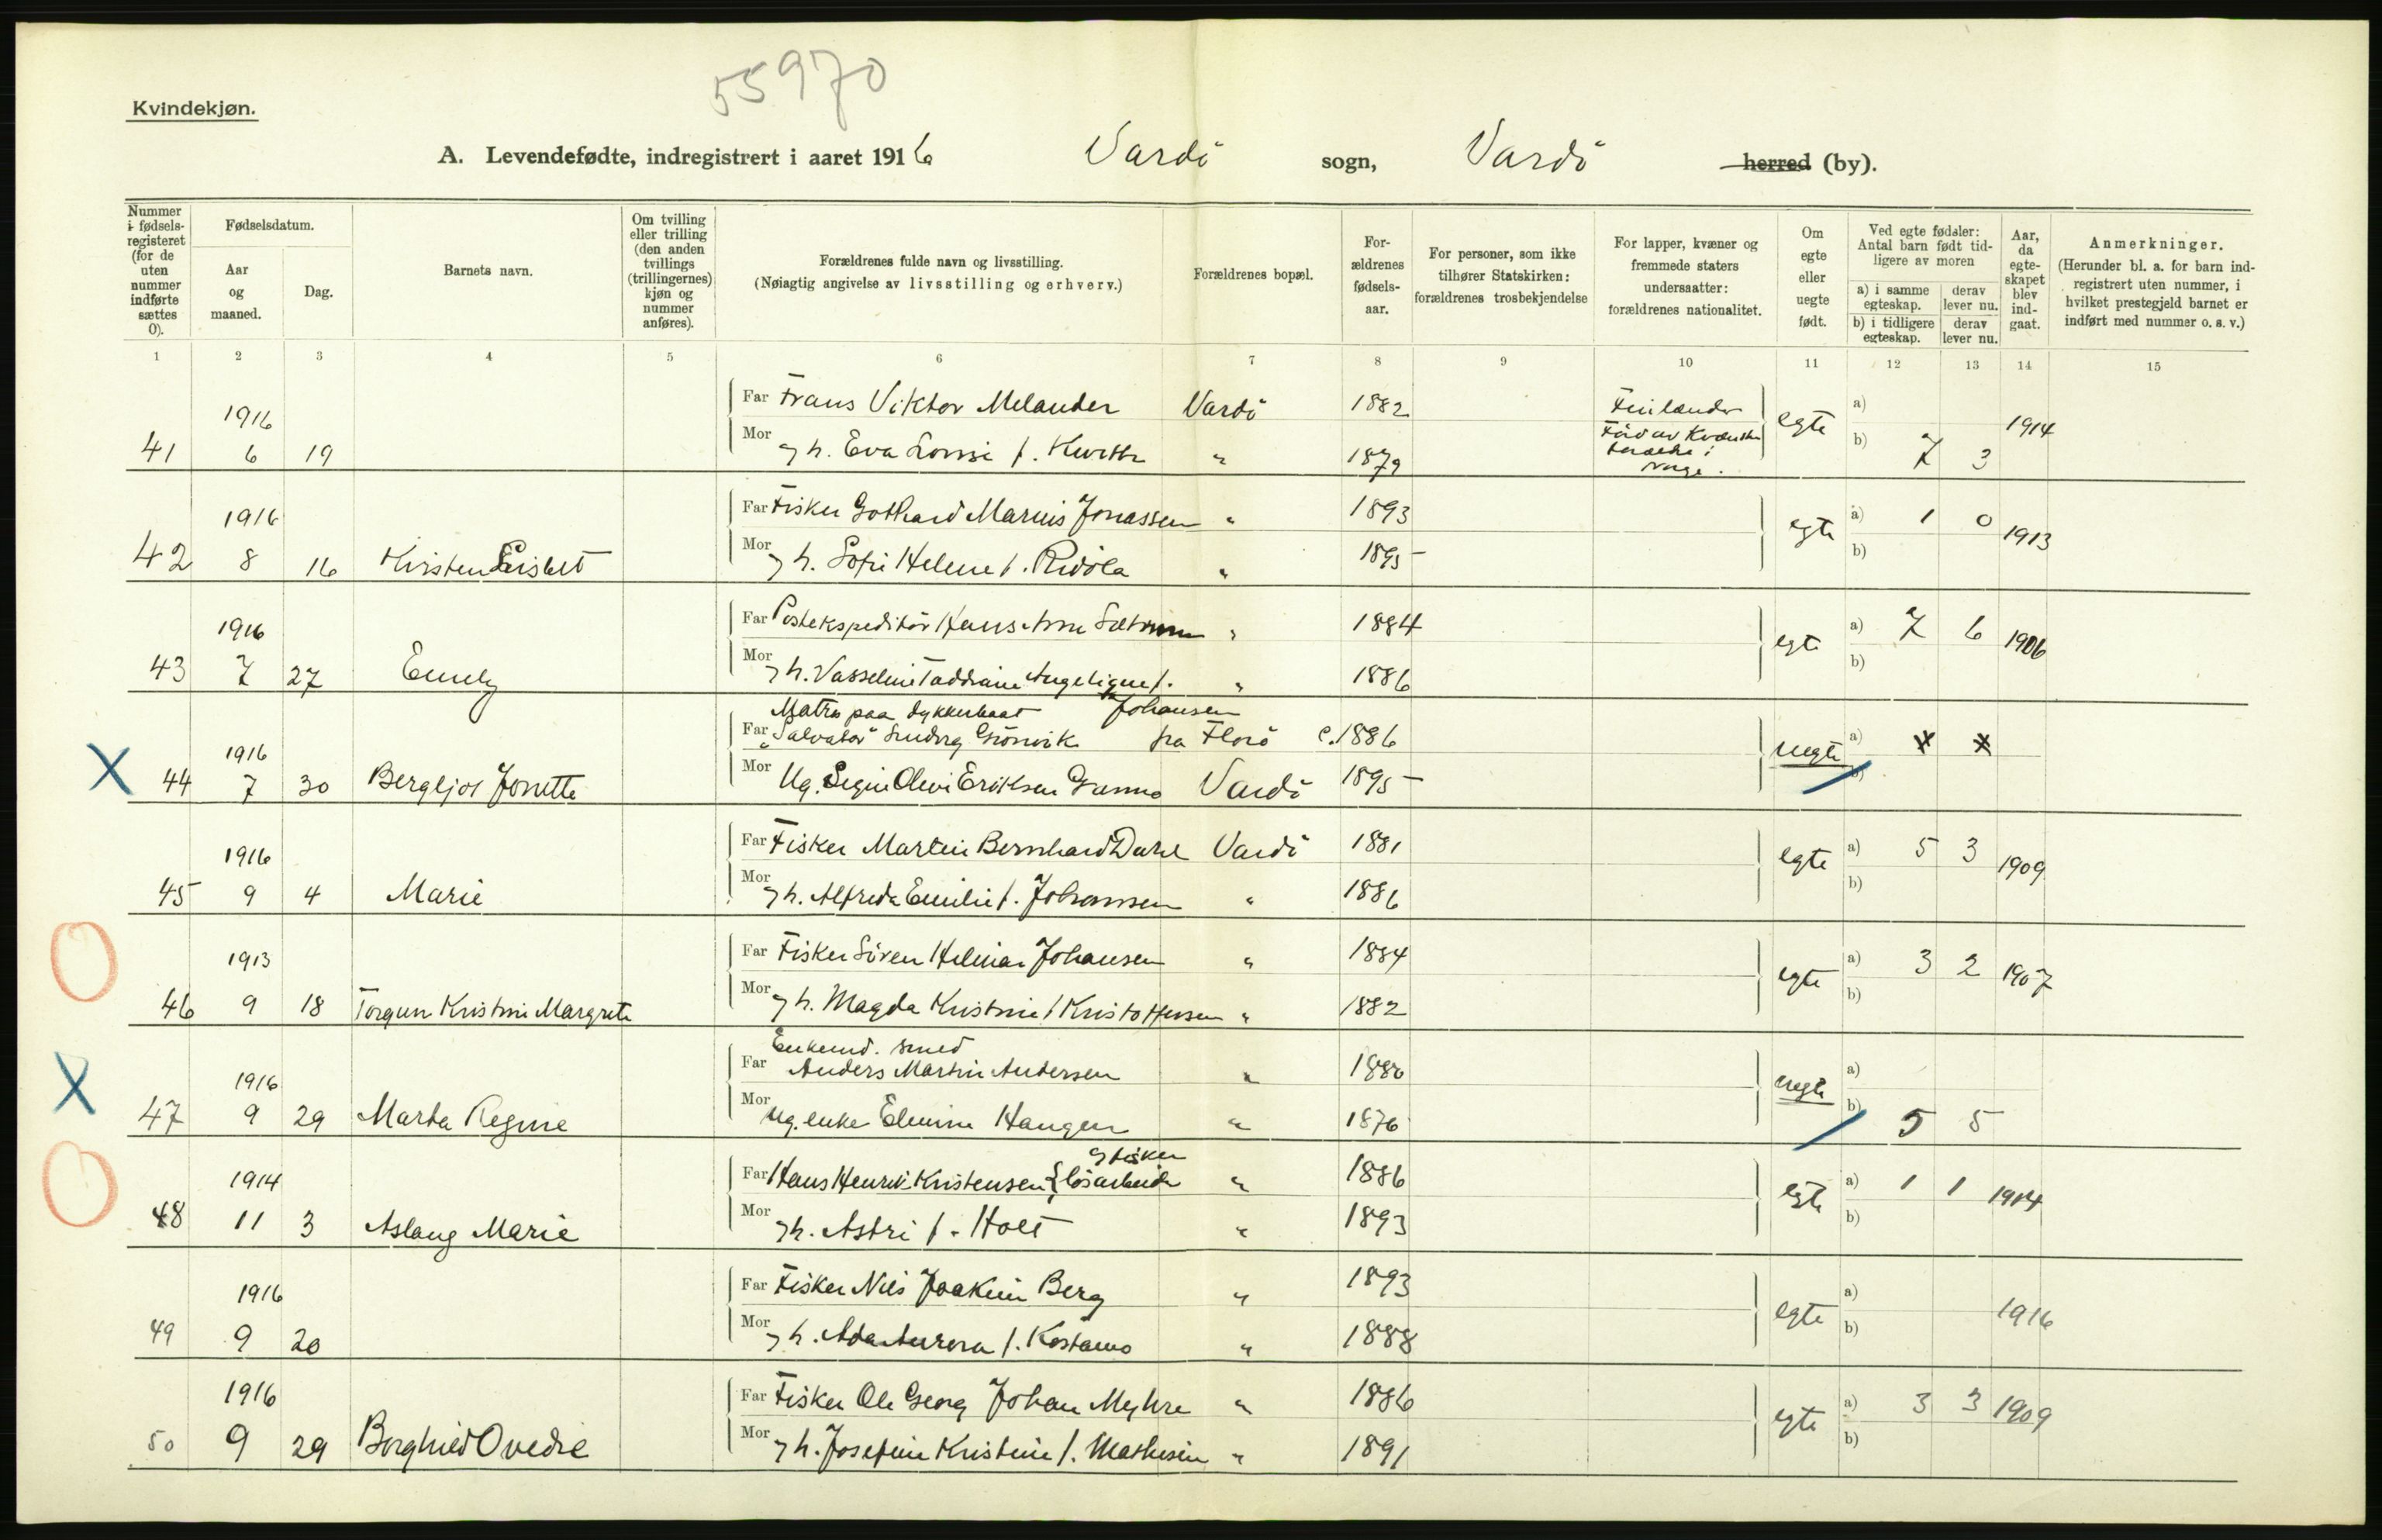 55970
Kvindekjøn.
A. Levendefødte, indregistrert i aaret 1916 Vardö sogn, Vardö herred (by).
Nummer i fødselsregisteret (for de uten nummer indførte sættes 0).
Fødselsdatum.
Aar og maaned.
Dag.
Barnets navn.
Om tvilling eller trilling (den anden tvillings (trillingernes) kjøn og nummer anføres).
Forældrenes fulde navn og livsstilling.
(Nøiagtig angivelse av livsstilling og erhverv.)
Forældrenes bopæl.
Forældrenes fødselsaar.
For personer, som ikke tilhører Statskirken: forældrenes trosbekjendelse
For lapper, kvæner og fremmede staters undersaatter: forældrenes nationalitet.
Om egte eller uegte født.
Ved egte fødsler: Antal barn født tidligere av moren
a) i samme egteskap.
derav lever nu.
b) i tidligere egteskap.
derav lever nu.
Aar, da egteskapet blev indgaat.
Anmerkninger.
(Herunder bl. a. for barn indregistrert uten nummer, i hvilket prestegjeld barnet er indført med nummer o. s. v.)
1 2 3 4 5 6 7 8 9 10 11 12 13 14 15
Far Frans Viktor Melander Vardö 1882 Finlænder
41 1916 6 19 egte a) b) 7 3 1914
Mor h. Eva f. " 1879
Far Fisker Gothard Marius Jonassen " 1893
42 1916 8 16 Kirsten Lisbet egte a) 1 0 b) 1913
Mor h. Sofie Helene f. Ridola " 1895
Far Postekspeditör Hans " 1884
43 1916 7 27 Emely egte a) 7 6 b) 1906
Mor h. Angelique f. Johansen " 1886
Matros paa dykkerbaat
Far "Salvator" Grönvik fra Florö c. 1886
X 44 1916 7 30 Bergljot Jonette uegte a) b)
Mor Ug. Eriksen Vardö 1895
Far Fisker Martin Bernhard Dahl Vardö 1881
45 1916 9 4 Marie egte a) 5 3 b) 1909
Mor h. Alfreda Emilie f. Johannsen " 1886
Far Fisker Sören Hilmar Johansen " 1884
46 1913 9 18 Torgun Kristine Margrete egte a) 3 2 b) 1907
Mor h. Magda Kristine f. Kristoffersen " 1882
Enkemd. smed
Far Anders Martin Andersen " 1880
X 47 1916 9 29 Marta Regine uegte a) b) 5 5
Mor Ug. enke Elmine Haugen " 1876
Far Hans Henrik Kristensen fisker lösarbeider " 1886
48 1914 11 3 Aslaug Marie egte a) 1 1 b) 1914
Mor h. Astri f. Holt " 1893
Far Fisker Nils Joakim Berg " 1893
49 1916 9 20 egte a) b) 1916
Mor h. Ada Aurora f. Kostamo " 1888
Far Fisker Ole Georg Johan Myhre " 1886
50 1916 9 29 Borghild Ovedie egte a) 3 3 b) 1909
Mor h. Josefine Kristine f. Mathisen " 1891